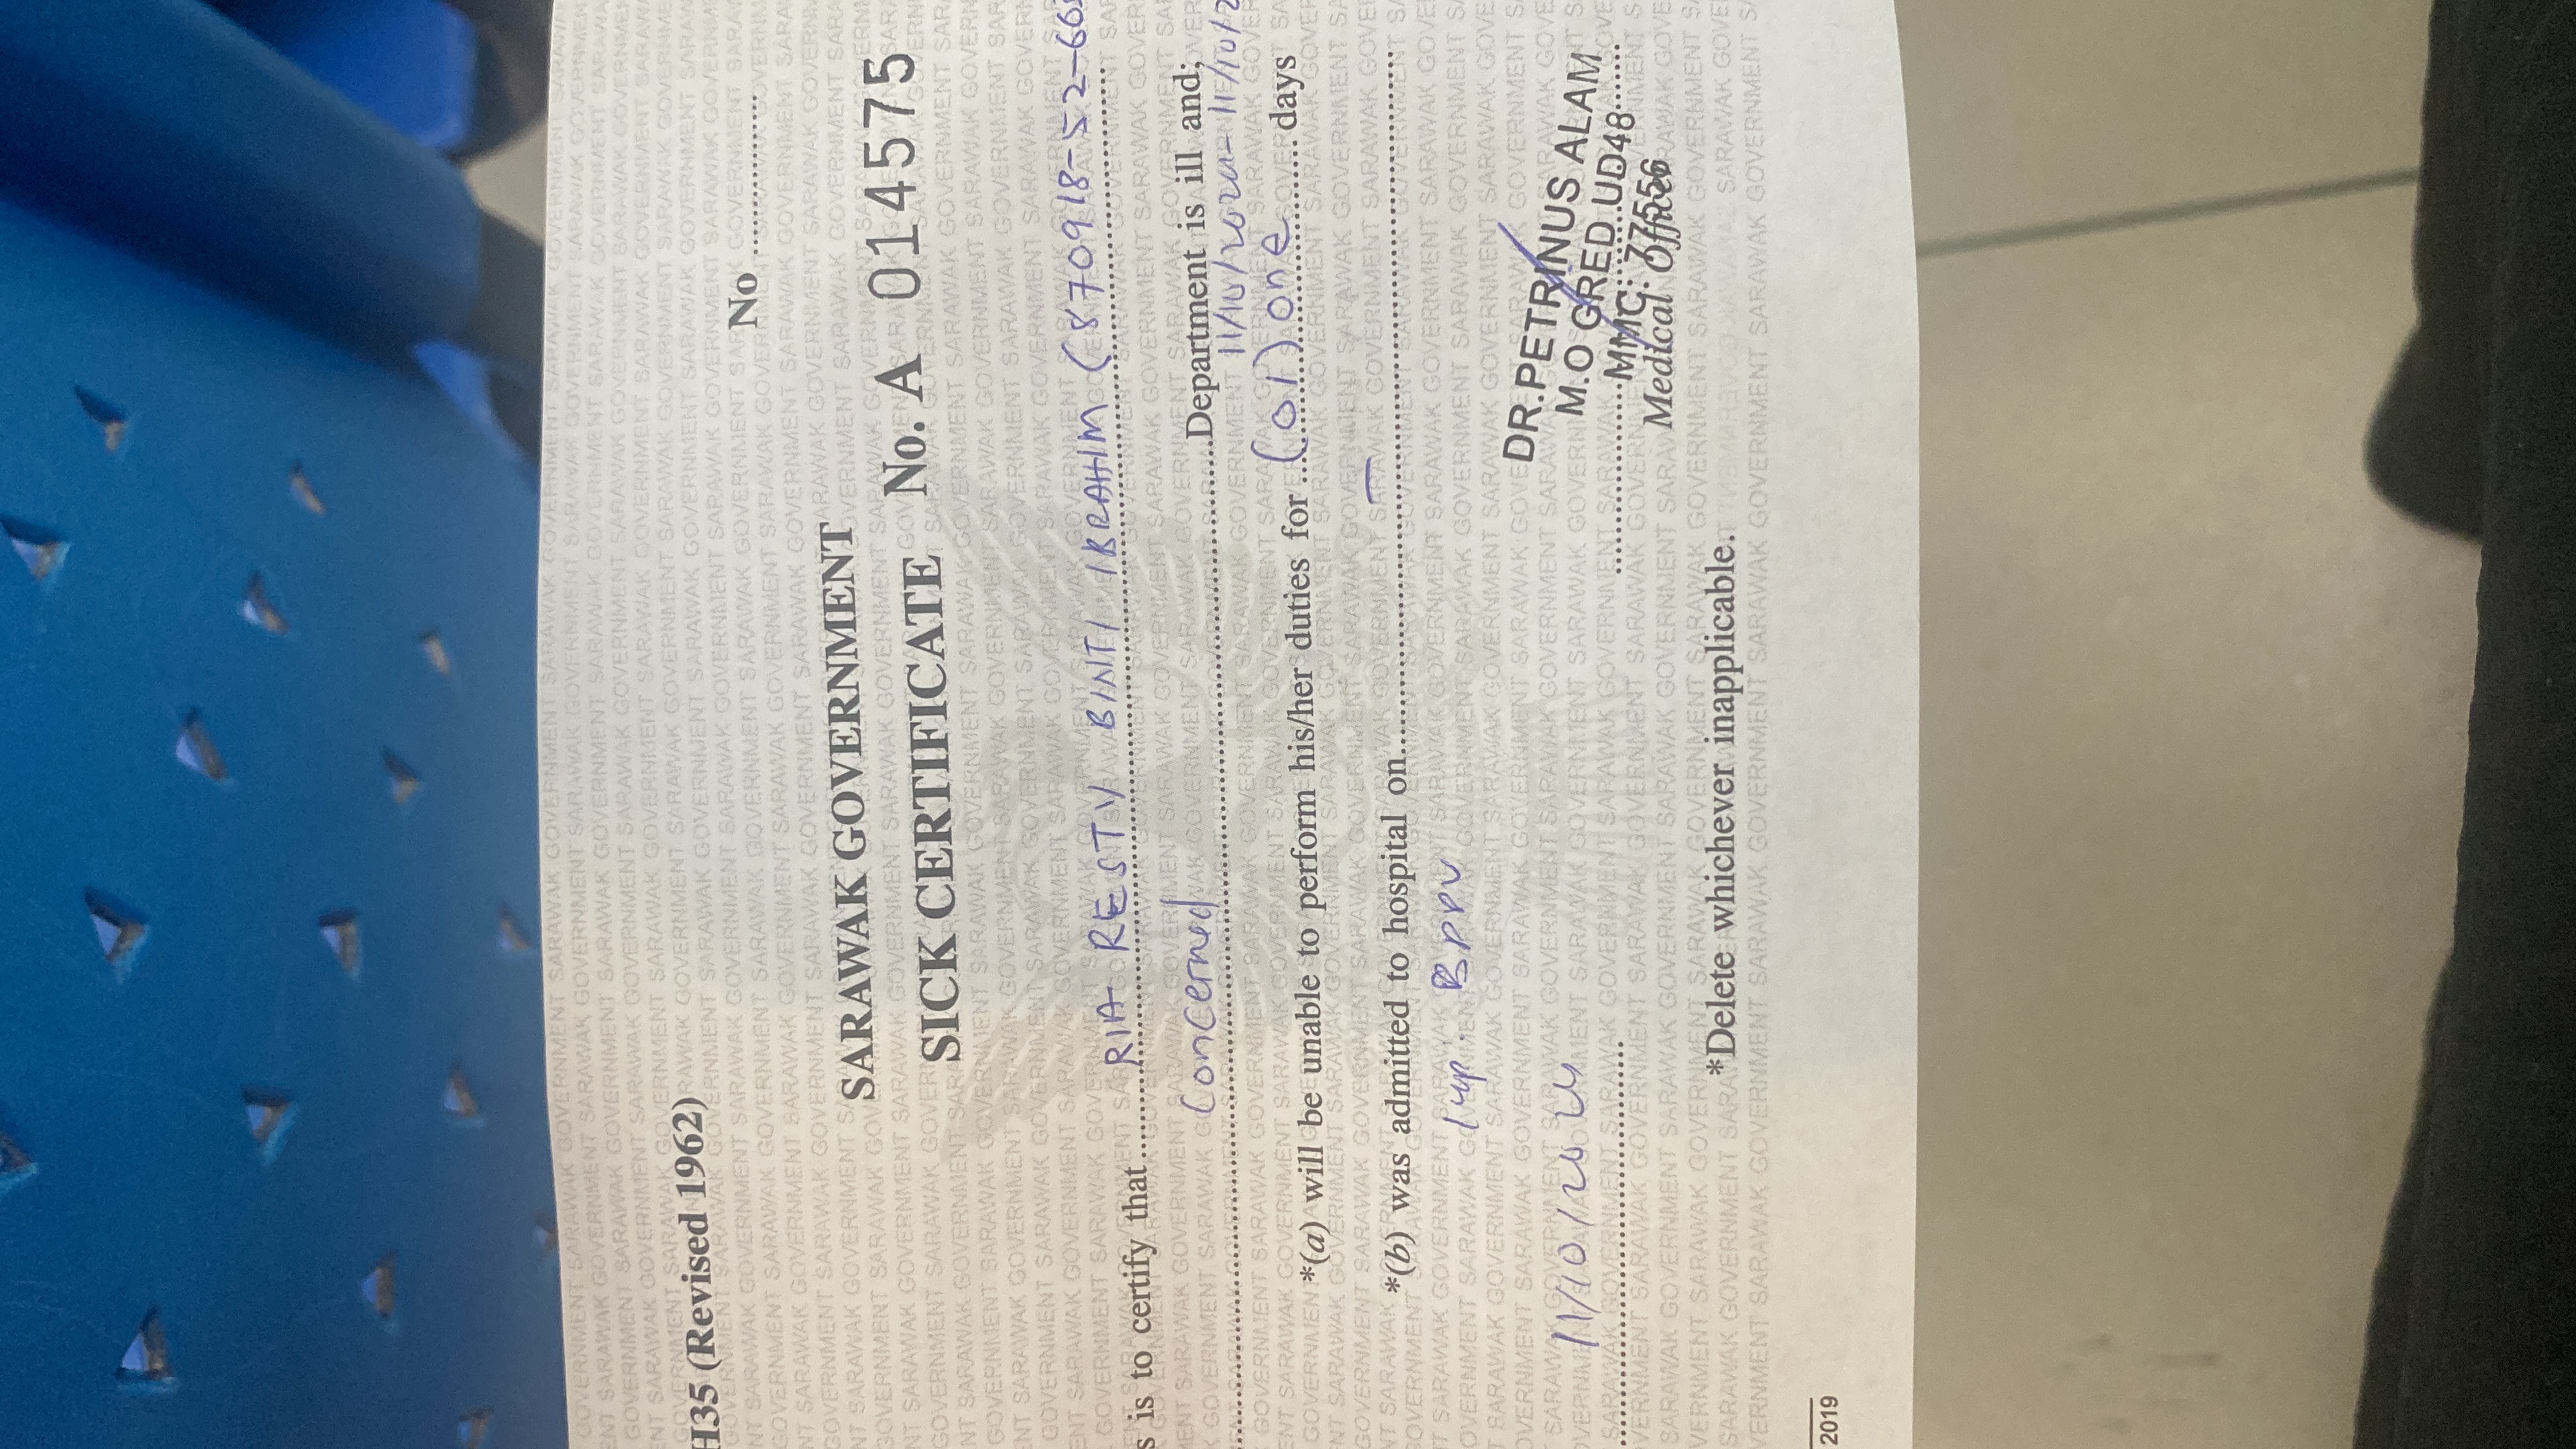 H35 (Revised 1962)
No
SARAWAK GOVERNMENT
SICK CERTIFICATE No. A 014575
s is to certify that RIA RESTY BINTI IBRAHIM (870918-52-66
Concerned Department is ill and;
11/10/2024 - 11/10/2
*(a) will be unable to perform his/her duties for (01) one days
*(b) was admitted to hospital on
BPPV
11/10/2024
DR.PETRINUS ALAM
M.O GRED UD48
MMC: 77556
Medical Officer
*Delete whichever inapplicable.
2019